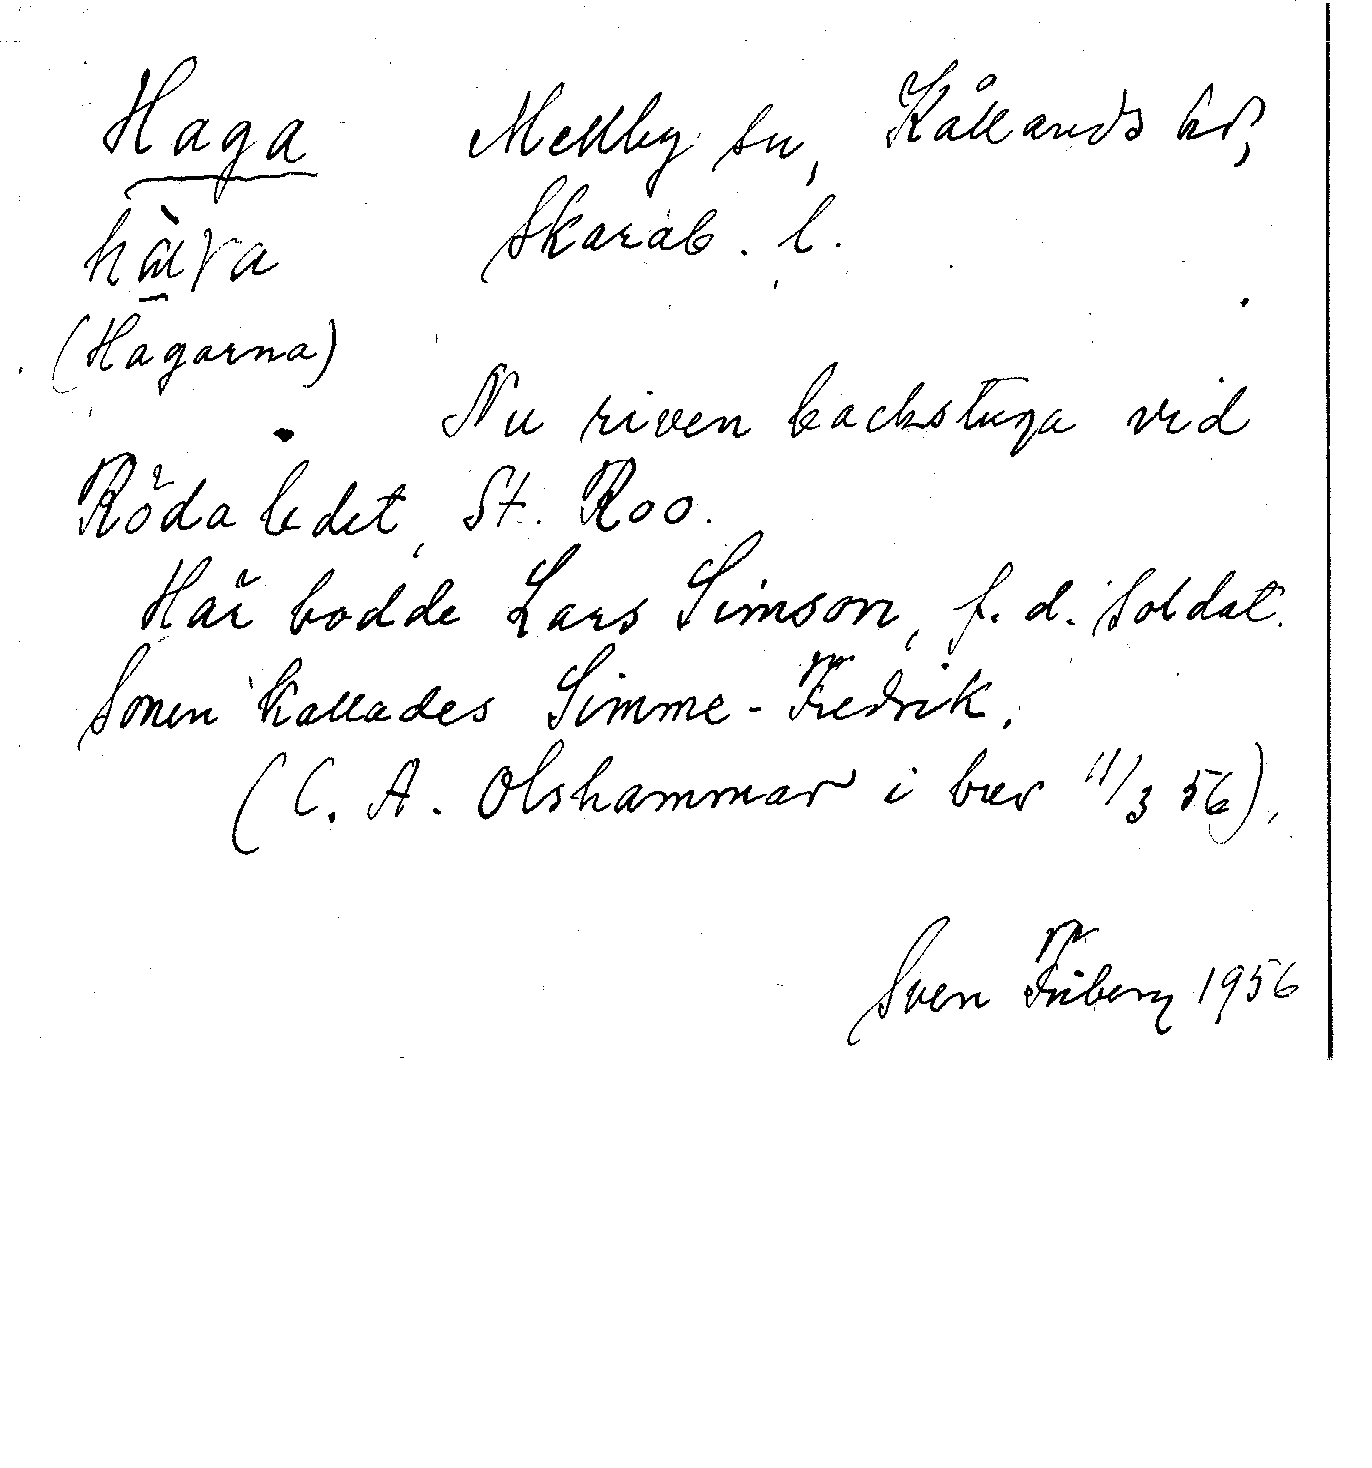 Haga Mellby sn, Kållands hd,
Skarab. l.
(Hagarna)
Nu riven backstuga vid
Röda ledet, St. Roo.
Här bodde Lars Simson, f. d. soldat.
Sonen kallades Simme-Fredrik.
(C. A. Olshammar i brev 11/3 56).
Sven Friberg 1956